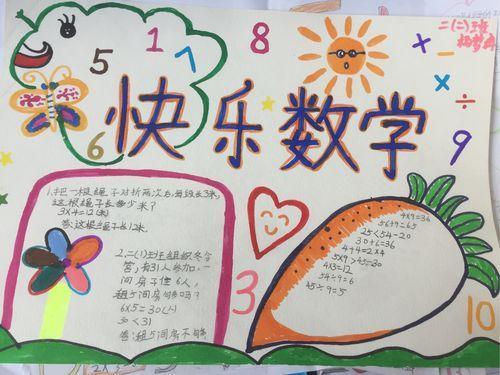 二(二)班
快乐数学
5
1
7
8
6
9
3
10
× - × ÷
1.把一根绳子对折两次后,每段长3米,
这根绳子长多少米?
3×4=12(米)
答:这根绳子长12米.
2.二(1)班组织冬令
营,有31人参加.一
间房子住6人,
租5间房够吗?
6×5=30(人)
30<31
答:租5间房不够.
4×9=36
56+9=65
25<54-20
30+6=36
4+4=2×4
5×9>45-30
4×3=12
54÷9=6
45÷9=5